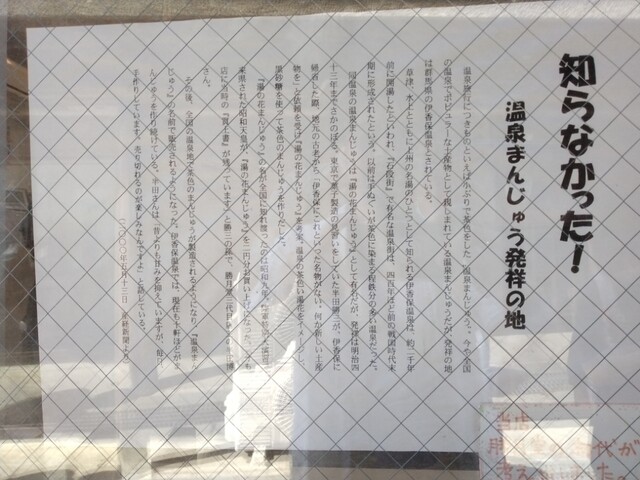 知らなかった！
温泉まんじゅう発祥の地
温泉旅行につきものといえば小ぶりで茶色をした「温泉まんじゅう」。今や全国
の温泉でポピュラーなお土産物として親しまれている温泉まんじゅうだが、発祥の地
は群馬県の伊香保温泉とされている。
草津、水上とともに上州の名湯のひとつとして知られる伊香保温泉は、約二千年
前に開湯したといわれ、「石段街」で有名な温泉街は、四百年ほど前の戦国時代末
期に形成されたという。以前は手ぬぐいが茶色に染まる程鉄分の多い温泉だった。
同温泉の温泉まんじゅうは『湯の花まんじゅう』として有名だが、発祥は明治四
十三年までさかのぼる。東京で菓子製造の見習いをしていた半田勝三が、伊香保に
帰省した際、地元の古老から「伊香保にこれといった名物がない。何か新しい土産
物を」と依頼を受け『湯の花まんじゅう』を考案。温泉の茶色い湯花をイメージし、
黒砂糖を使って茶色のまんじゅうを作りだした。
『湯の花まんじゅう』の名が全国に知れ渡ったのは昭和九年
来県された昭和天皇が、『湯の花まんじゅう』を二円分お買い上げになった。
店に当時の『買上書』が残っています」と勝三の孫で、勝月堂三代
さん。
その後、全国の温泉地で茶色のまんじゅうが製造されるようになり、『温泉まん
じゅう』の名前で販売されるようになった。伊香保温泉では、現在も十軒ほどが
んじゅうを作り続けている。半田さんは、「昔よりも甘みを抑えていますが、毎日
手作りしています。売り切れるのが楽しみなんですよ」と話している。
二〇〇〇年五月十三日　産経新聞より
当店
代が